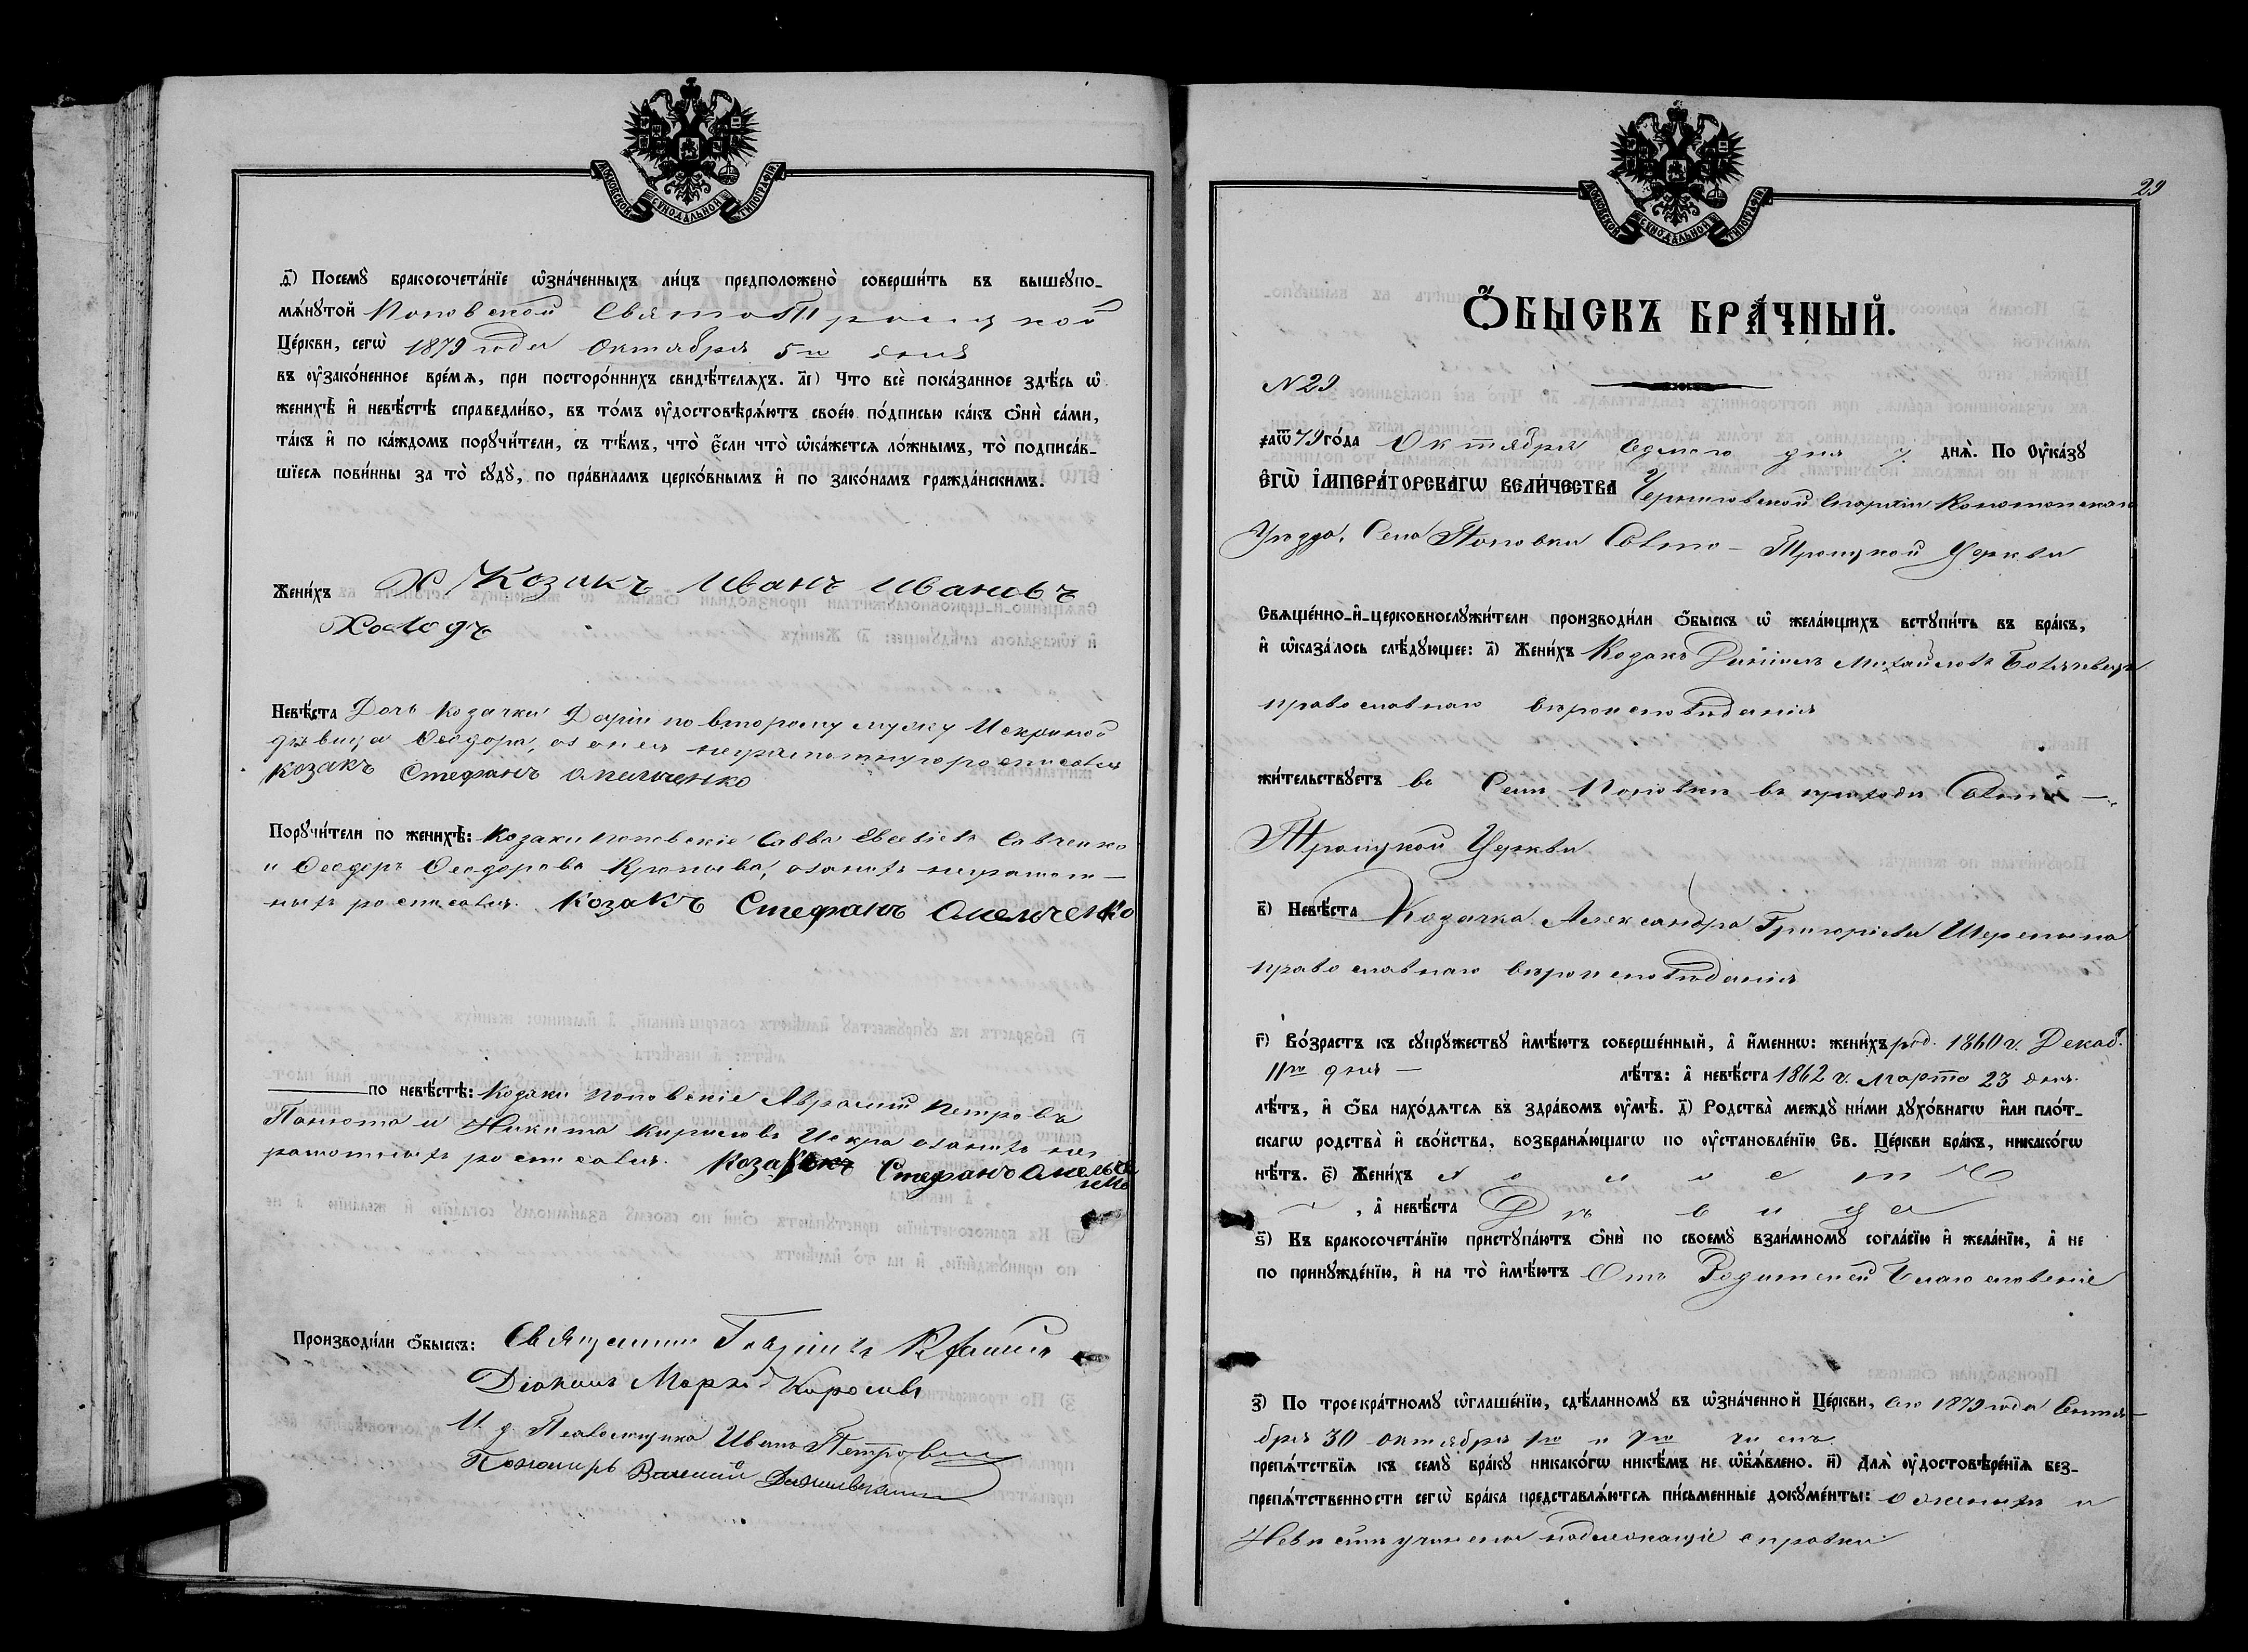 МОСКОВСКОЙ СѴНОДАЛЬНОЙ ТИПОГРАФІИ
і҃) Посемꙋ̀ бракосочета́нїе ѡ҆зна́ченныхъ ли́цъ предположено̀ соверши́ть въ вышеꙋпо-
мѧ́нꙋтой Поповской Свято Троицкой
Це́ркви, сегѡ̀ 1879 года Октября 5го дня
въ ᲂу҆зако́ненное вре́мѧ, при посторо́ннихъ свидѣ́телѧхъ. а҃і) Что всѐ пока́занное здѣ́сь ѡ҆
женихѣ̀ и҆ невѣ́стѣ справедли́во, въ то́мъ ᲂу҆достовѣрѧ́ютъ свое́ю по́дписью ка́къ ѻ҆нѝ са́ми,
та́къ и҆ по ка́ждомъ порꙋчи́тели, съ тѣ́мъ, что̀ є҆́сли что̀ ѡ҆ка́жетсѧ ло́жнымъ, то̀ подписа́в-
шїесѧ пови́нны за то̀ сꙋдꙋ̀, по пра́виламъ церко́внымъ и҆ по зако́намъ гражда́нскимъ.
Жени́хъ Козакъ Иванъ Ивановъ
Холодъ
Невѣ́ста Дочь козачки Дарiи по второму мужу Искриной
дѣвица Ѳеодора, а за нея неграмотную росписался
Козакъ Стефанъ Омельченко
Порꙋчи́тели по женихѣ̀: Козаки поповскiе Савва Евсевiевъ Савченко
и Ѳеодоръ Ѳеодоровъ Кропива, а за нихъ неграмот-
ныхъ росписался. Козакъ Стефанъ Омельченко
по невѣ́стѣ: Козаки поповскiе Аврамiй Петровъ
Панюта и Никита Кириловъ Искра а за нихъ не-
грамотныхъ росписался. Козакъ Стефанъ Омельченко
Производи́ли ѻ҆́быскъ: Священникъ
Дiаконъ Марко Королевъ
И. д. Псаломщика Иванъ Петровскiй
Пономарь Василiй
29
МОСКОВСКОЙ СѴНОДАЛЬНОЙ ТИПОГРАФІИ
Ѻ҆́БЫСКЪ БРА́ЧНЫЙ.
N 29
҂аѿ 79 го́да Октября седьмого дня 7. днѧ̀. По Оу҆ка́зꙋ
Є҆ГѠ̀ І҆МПЕРА́ТОРСКАГѠ ВЕЛИ́ЧЕСТВА Черниговской Епархiи Конотопскаго
Уѣзда, Села Поповки Свято-Троицкой Церкви
Свѧще́нно-и҆-церковнослꙋжи́тели производи́ли ѻ҆́быскъ ѡ҆ жела́ющихъ встꙋпи́ть въ бра́къ,
и҆ ѡ҆каза́лось слѣ́дꙋющее: а҃) Жени́хъ Козакъ Данiилъ Михайловъ
православнаго вѣроисповѣданiя
жи́тельствꙋетъ въ Селѣ Поповкѣ въ приходѣ Свято-
Троицкой Церкви
в҃) Невѣ́ста Козачка Александра Григорiева
православнаго вѣроисповѣданiя
г҃) Во́зрастъ къ сꙋпрꙋ́жествꙋ и҆мѣ́ютъ соверше́нный, а҆ и҆́меннѡ: жени́хъ род. 1860 г. Декаб.
11го дня — лѣ́тъ: а҆ невѣ́ста 1862 г. Марта 23 дня.
лѣ́тъ, и҆ ѻ҆́ба нахо́дѧтсѧ въ здра́вомъ ᲂу҆мѣ̀. д҃) Родства̀ междꙋ̀ ни́ми дꙋхо́внагѡ и҆лѝ пло́т-
скагѡ родства̀ и҆ сво́йства, возбранѧ́ющагѡ по ᲂу҆становле́нїю Св. Це́ркви бра́къ, никако́гѡ
нѣ́тъ. є҃) Жени́хъ холостъ
, а҆ невѣ́ста Дѣвица
ѕ҃) Къ бракосочета́нїю пристꙋпа́ютъ ѻ҆нѝ по своемꙋ̀ взаи́мномꙋ согла́сїю и҆ жела́нїю, а҆ не
по принꙋжде́нїю, и҆ на то̀ и҆мѣ́ютъ Отъ Родителей благословенiе
з҃) По троекра́тномꙋ ѡ҆глаше́нїю, сдѣ́ланномꙋ въ ѡ҆зна́ченной Це́ркви, сего 1879 года Сентя-
бря 30 октября 1го и 7го чиселъ.
препѧ́тствїѧ къ семꙋ̀ бра́кꙋ никако́гѡ никѣ́мъ не ѡ҆б̾ѧ́влено. и҃) Длѧ̀ ᲂу҆достовѣре́нїѧ без-
препѧ́тственности сегѡ̀ бра́ка представлѧ́ютсѧ пи́сьменные докꙋме́нты: о женихѣ и
Невѣстѣ учинены надлежащiе справки